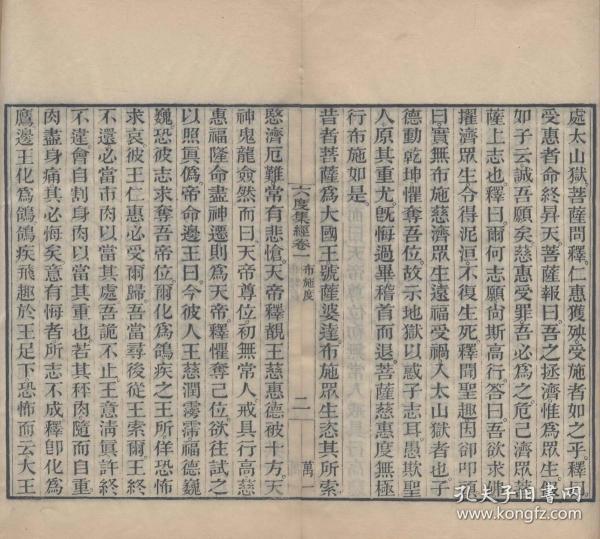 處太山獄菩薩問釋仁惠獲殃受施者如之乎釋曰
受惠者命終昇天菩薩報曰吾之拯濟惟爲眾生假
如子云誠吾願矣慈惠受罪吾必爲之危己濟眾菩
薩上志也釋曰爾何志願尚斯高行答曰吾欲求佛
擢濟眾生令得泥洹不復生死釋聞聖趣因卻叩頭
曰實無布施慈濟眾生遠福受禍入太山獄者也子
德動乾坤懼奪吾位故示地獄以惑子志耳愚欺聖
人原其重尤旣悔過畢稽首而退菩薩慈惠度無極
行布施如是
昔者菩薩爲大國王號薩婆達布施眾生恣其所索
六度集經卷一 布施度 二 萬一
愍濟厄難常有悲愴天帝釋覩王慈惠德被十方天
神鬼龍僉然而曰天帝尊位初無常人戒具行高慈
惠福隆命盡神遷則爲天帝釋懼奪己位欲往試之
以照眞僞帝命邊王曰今彼人王慈潤霶霈福德巍
巍恐彼志求奪吾帝位爾化爲鴿疾之王所佯恐怖
求哀彼王仁惠必受爾歸吾當尋後從王索爾王終
不還必當市肉以當其處吾詭不止王意清眞許終
不違會自割身肉以當其重也若其秤肉隨而自重
肉盡身痛其必悔矣意有悔者所志不成釋卽化爲
鷹邊王化爲鴿鴿疾飛趣於王足下恐怖而云大王
孔夫子旧書网
www.kongfz.com